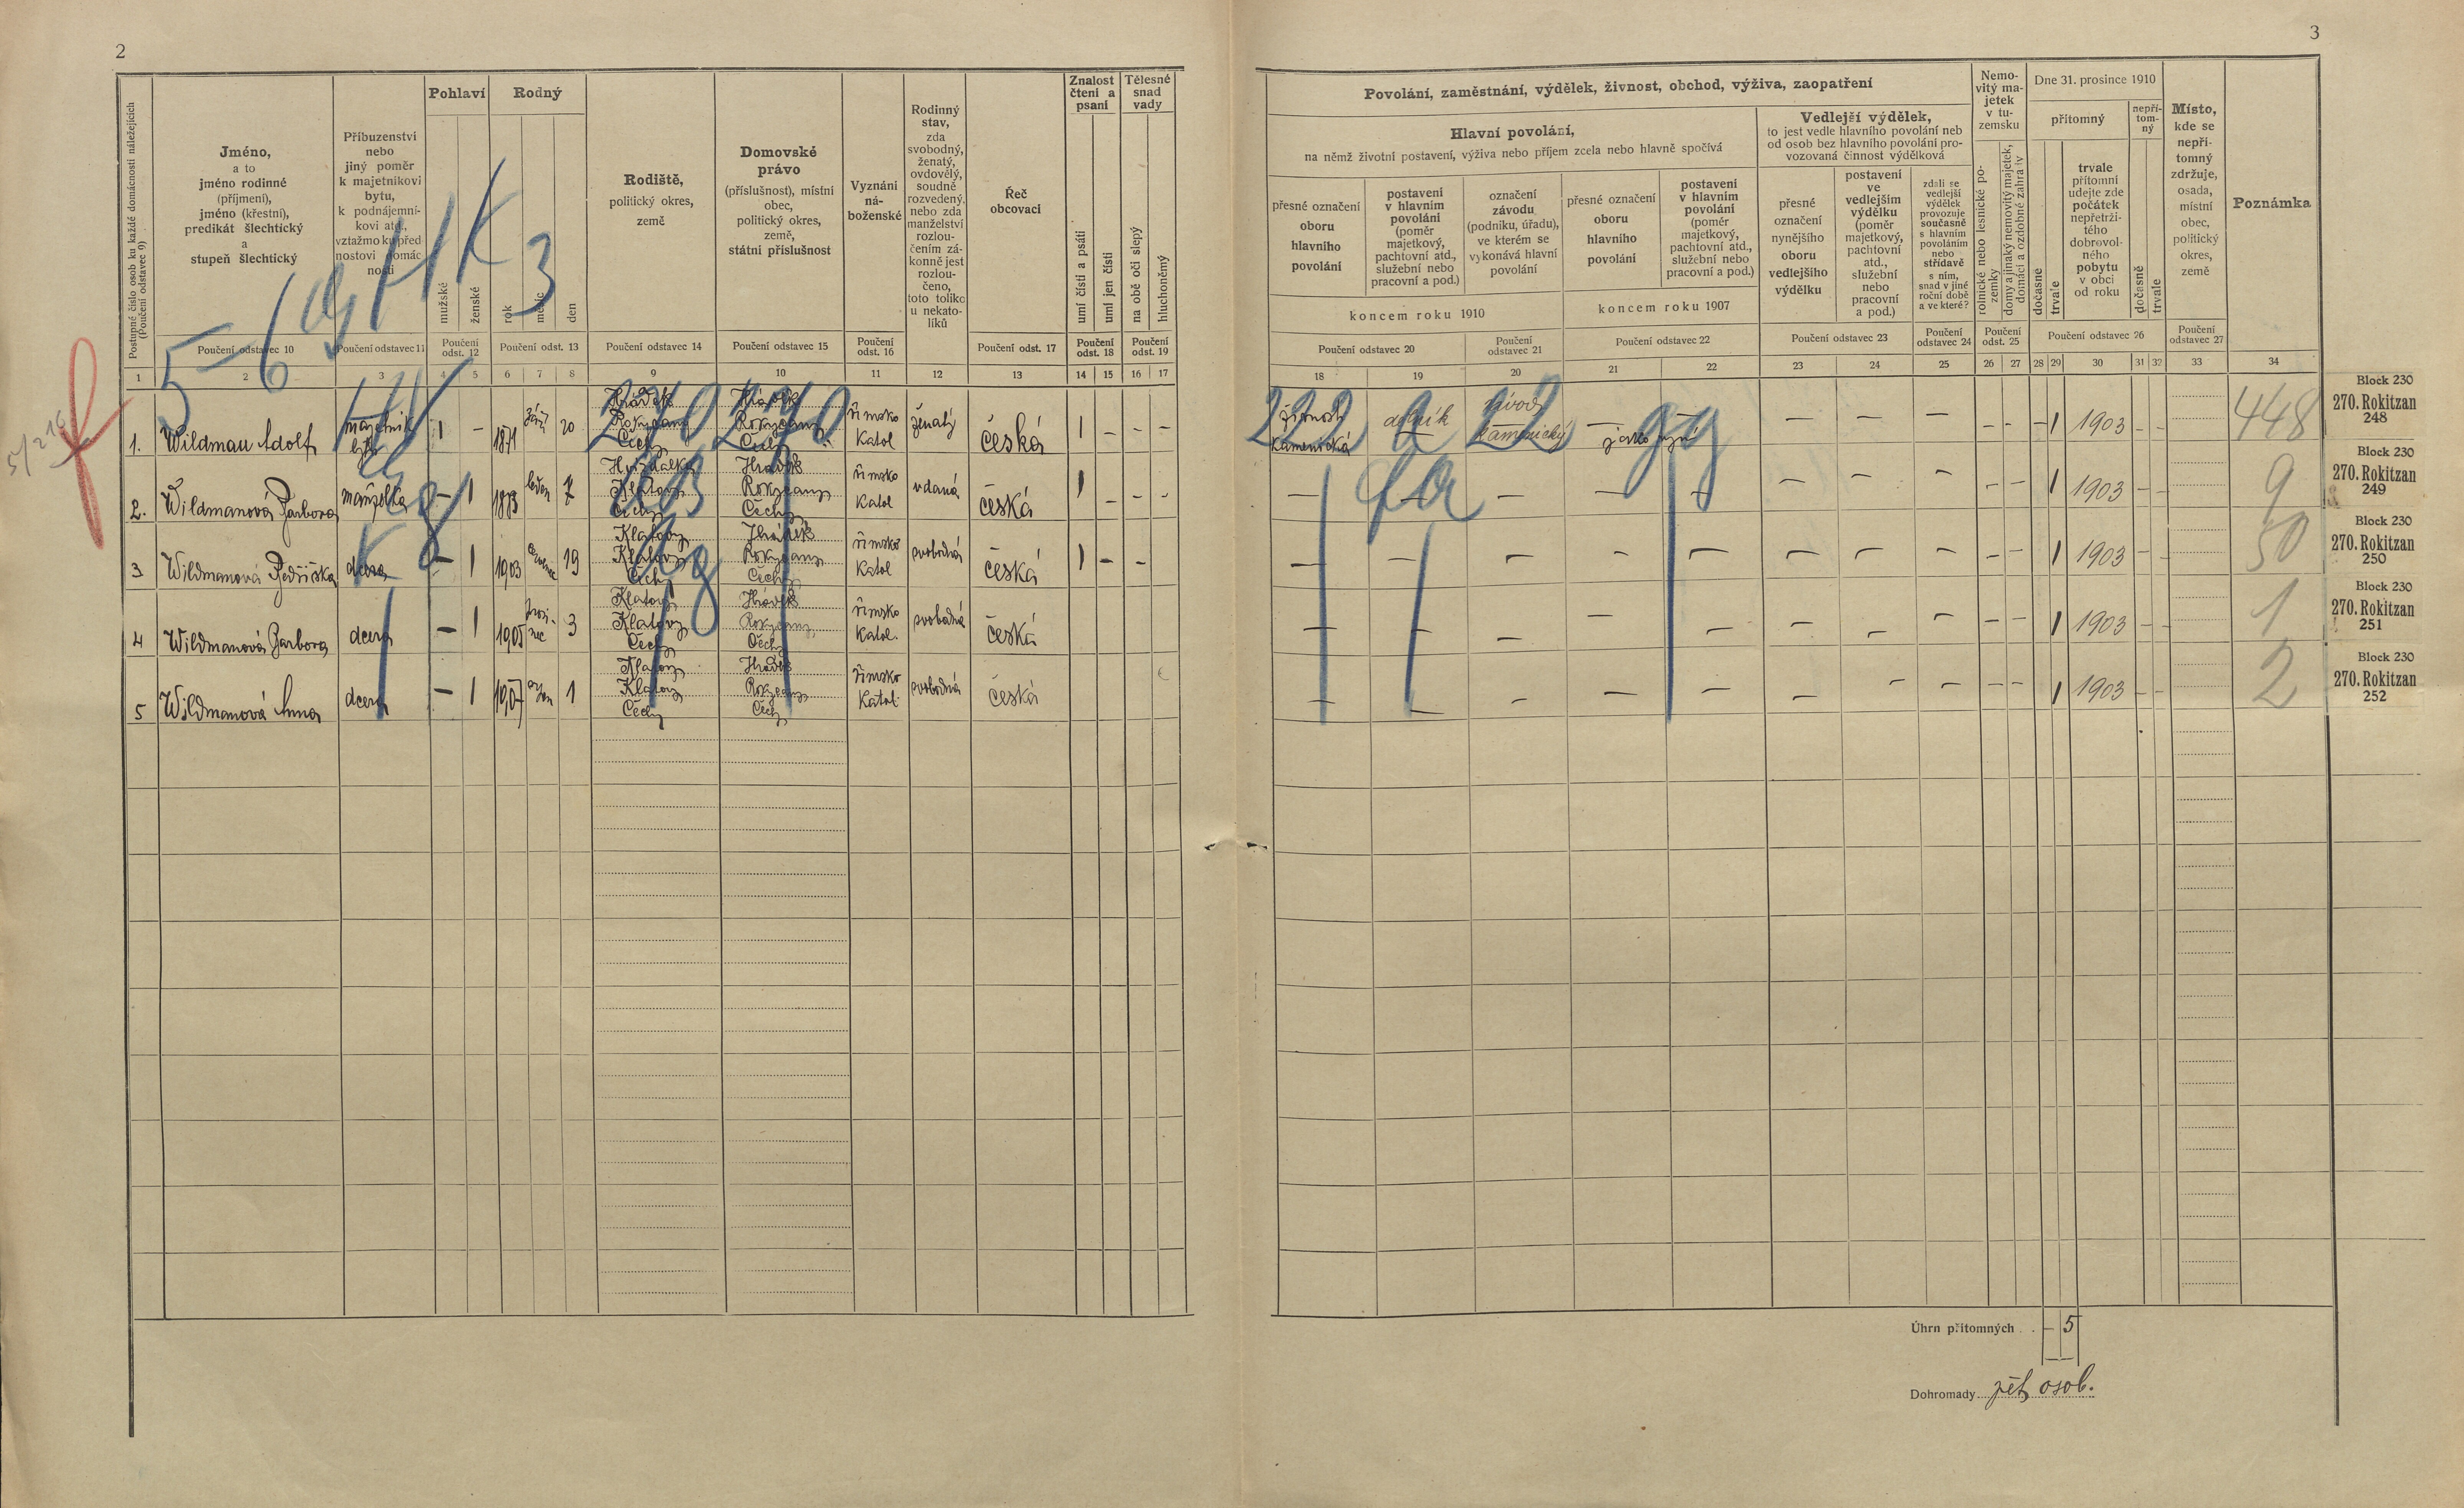 2
3
Postupné číslo osob ku každé domácnosti náležejících
(Poučení odstavec 9)
Jméno,
a to
jméno rodinné
(příjmení),
jméno (křestní),
predikát šlechtický
a
stupeň šlechtický
Poučení odstavec 10
Příbuzenství
nebo
jiný poměr
k majetníkovi
bytu,
k podnájemní-
kovi atd.,
vztažmo ku před-
nostovi domác-
nosti
Poučení odstavec 11
Pohlaví
mužské
ženské
Poučení
odst. 12
Rodný
rok
měsíc
den
Poučení odst. 13
Rodiště,
politický okres,
země
Poučení odstavec 14
Domovské
právo
(příslušnost), místní
obec,
politický okres,
země,
státní příslušnost
Poučení odstavec 15
Vyznání
ná-
boženské
Poučení
odst. 16
Rodinný
stav,
zda
svobodný,
ženatý,
ovdovělý,
soudně
rozvedený,
nebo zda
manželství
rozlou-
čením zá-
konně jest
rozlou-
čeno,
toto toliko
u nekato-
líků
Řeč
obcovací
Poučení odst. 17
Znalost
čtení a
psaní
umí čísti a psáti
umí jen čísti
Poučení
odst. 18
Tělesné
snad
vady
na obě oči slepý
hluchoněmý
Poučení
odst. 19
1 2 3 4 5 6 7 8 9 10 11 12 13 14 15 16 17
Povolání, zaměstnání, výdělek, živnost, obchod, výživa, zaopatření
Hlavní povolání,
na němž životní postavení, výživa nebo příjem zcela nebo hlavně spočívá
přesné označení
oboru
hlavního
povolání
postavení
v hlavním
povolání
(poměr
majetkový,
pachtovní atd.,
služební nebo
pracovní a pod.)
označení
závodu
(podniku, úřadu),
ve kterém se
vykonává hlavní
povolání
koncem roku 1910
přesné označení
oboru
hlavního
povolání
postavení
v hlavním
povolání
(poměr
majetkový,
pachtovní atd.,
služební nebo
pracovní a pod.)
koncem roku 1907
Poučení odstavec 20
Poučení
odstavec 21
Poučení odstavec 22
Vedlejší výdělek,
to jest vedle hlavního povolání neb
od osob bez hlavního povolání pro-
vozovaná činnost výdělková
přesné
označení
nynějšího
oboru
vedlejšího
výdělku
postavení
ve
vedlejším
výdělku
(poměr
majetkový,
pachtovní
atd.,
služební
nebo
pracovní
a pod.)
zdali se
vedlejší
výdělek
provozuje
současně
s hlavním
povoláním
nebo
střídavě
s ním,
snad v jiné
roční době
a ve které?
Poučení odstavec 23
Poučení
odstavec 24
Nemo-
vitý ma-
jetek
v tu-
zemsku
rolnické nebo lesnické po-
zemky
domy a jinaký nemovitý majetek,
domácí a ozdobné zahrady
Poučení
odst. 25
Dne 31. prosince 1910
přítomný
nepří-
tom-
ný
dočasně
trvale
trvale
přítomní
udejte zde
počátek
nepřetrži-
tého
dobrovol-
ného
pobytu
v obci
od roku
dočasně
trvale
Poučení odstavec 26
Místo,
kde se
nepří-
tomný
zdržuje,
osada,
místní
obec,
politický
okres,
země
Poučení
odstavec 27
Poznámka
18 19 20 21 22 23 24 25 26 27 28 29 30 31 32 33 34
5-6 g HK 3
5/216
1. Wildman Adolf majetník bytu 1 – 1871 září 20 Hrádek Rokycany Čechy Hrádek Rokycany Čechy římsko katol ženatý česká 1 – – –
živnost kamenická dělník závod kamenický – jako nyní – – – – – – – 1 1903 – – 448
2. Wildmanová Barbora manželka – 1 1883 leden 7 Klatovy Čechy Hrádek Rokycany Čechy římsko katol vdaná česká 1 – – –
– – – – – – – – – – 1 1903 – – 9
3 Wildmanová Bedřiška dcera – 1 1903 červenec 19 Klatovy Klatovy Čechy Hrádek Rokycany Čechy římsko katol svobodná česká 1 – –
– – – – – – – – – – 1 1903 – – 50
4 Wildmanová Barbora dcera – 1 1905 prosinec 3 Klatovy Klatovy Čechy Hrádek Rokycany Čechy římsko katol. svobodná česká
– – – – – – – – – – 1 1903 – – 1
5 Wildmanová Anna dcera – 1 1907 1 Klatovy Klatovy Čechy Hrádek Rokycany Čechy římsko katol. svobodná česká
– – – – – – – – – – 1 1903 – – 2
240 240
222 a 22 gg
fa
Block 230
270. Rokitzan
248
Block 230
270. Rokitzan
249
Block 230
270. Rokitzan
250
Block 230
270. Rokitzan
251
Block 230
270. Rokitzan
252
Úhrn přítomných . . – 5
Dohromady pět osob.